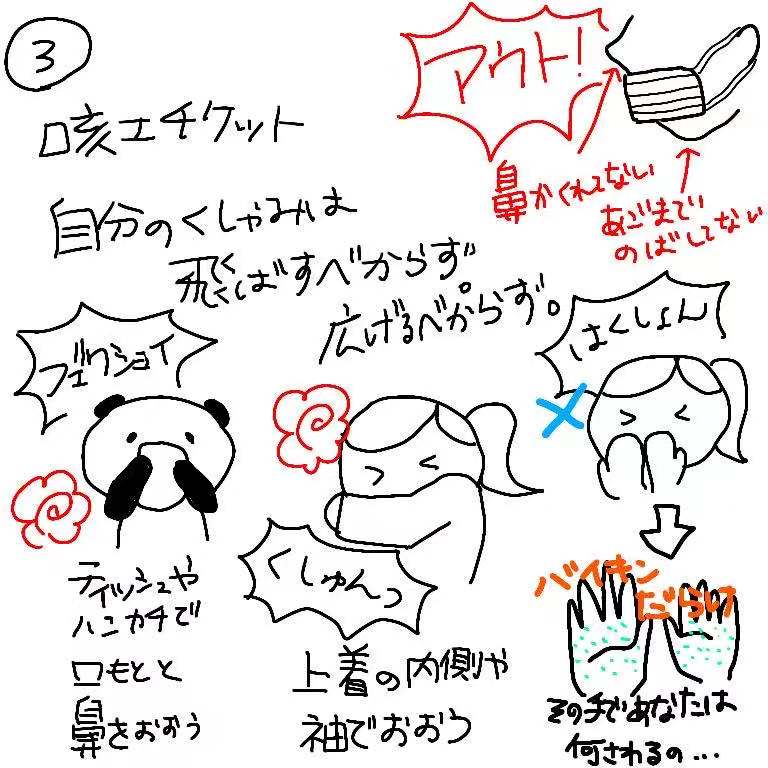 3
咳エチケット
アウト!
鼻かくれてない
あごまで
のばしてない
自分のくしゃみは
飛ばすべからず
広げるべからず。
フェクショイ
ティッシュや
ハンカチで
口もとと
鼻をおおう
くしゅんっ
上着の内側や
袖でおおう
はくしょん
バイキン
だらけ
その手であなたは
何さわるの…